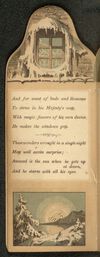 And for want of buds and blossoms
To strew in his Majesty's way,
With magic flowers of his own device
He makes the windows gay.
Those wonders wrought in a single night
May well excite surprise;
Amazed is the sun when he gets up
at dawn,
And he stares with all his eyes